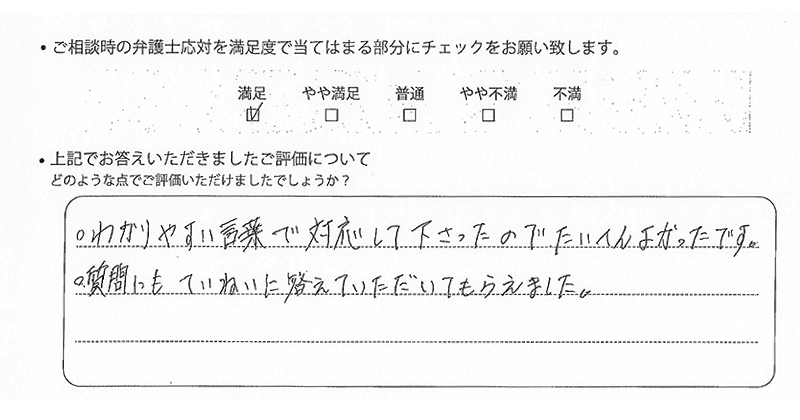 • ご相談時の弁護士応対を満足度で当てはまる部分にチェックをお願い致します。
満足 やや満足 普通 やや不満 不満
☑ □ □ □ □
• 上記でお答えいただきましたご評価について
どのような点でご評価いただけましたでしょうか？
○わかりやすい言葉で対応して下さったのでたいへんよかったです。
○質問にもていねいに答えていただいてもらえました。